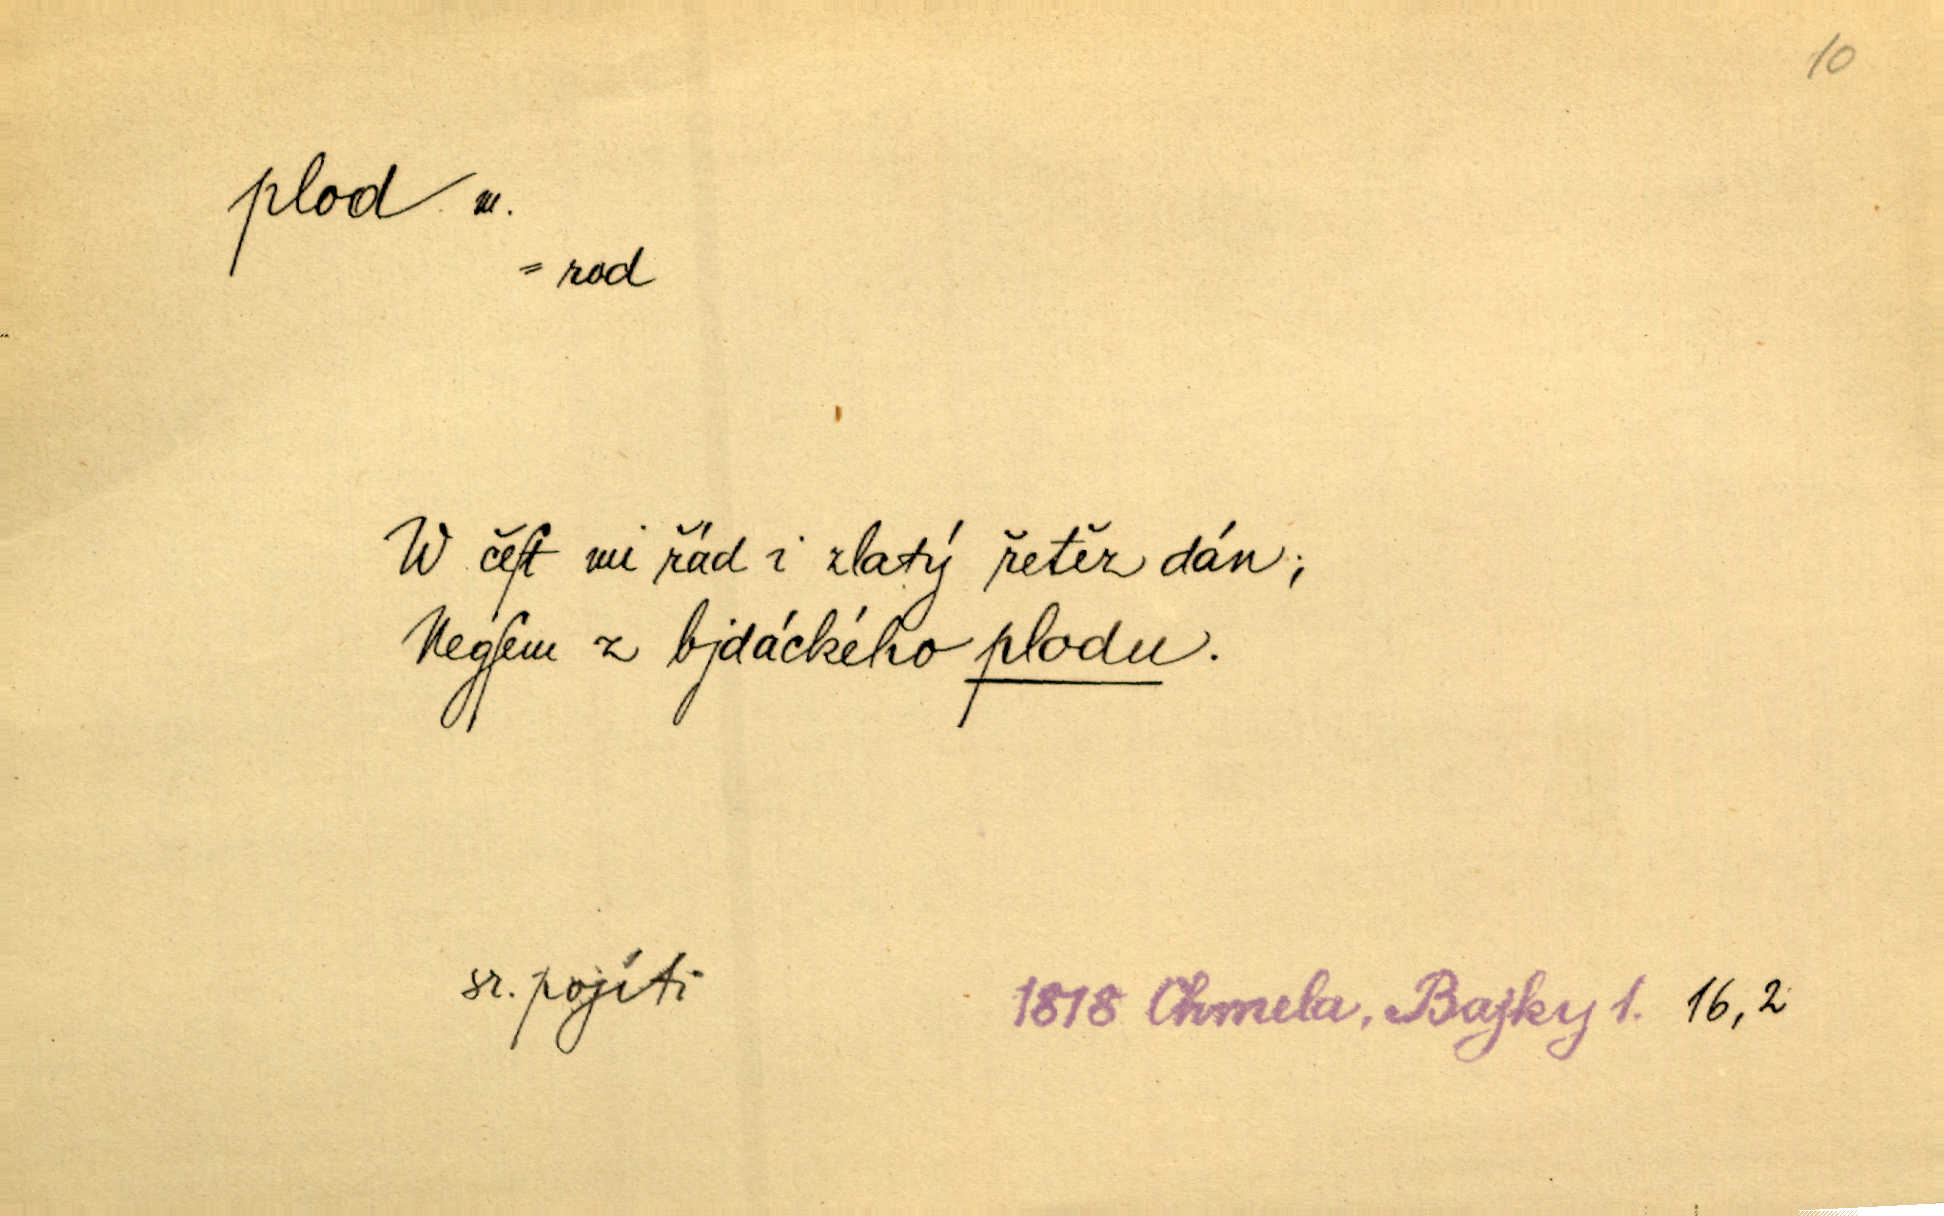 10
plod m.
= rod
W čeſt mi řád i zlatý řetěz dán;
Negſem z bjdáckého plodu.
sr. pojíti
1818 Chmela, Bajky 1. 16,2